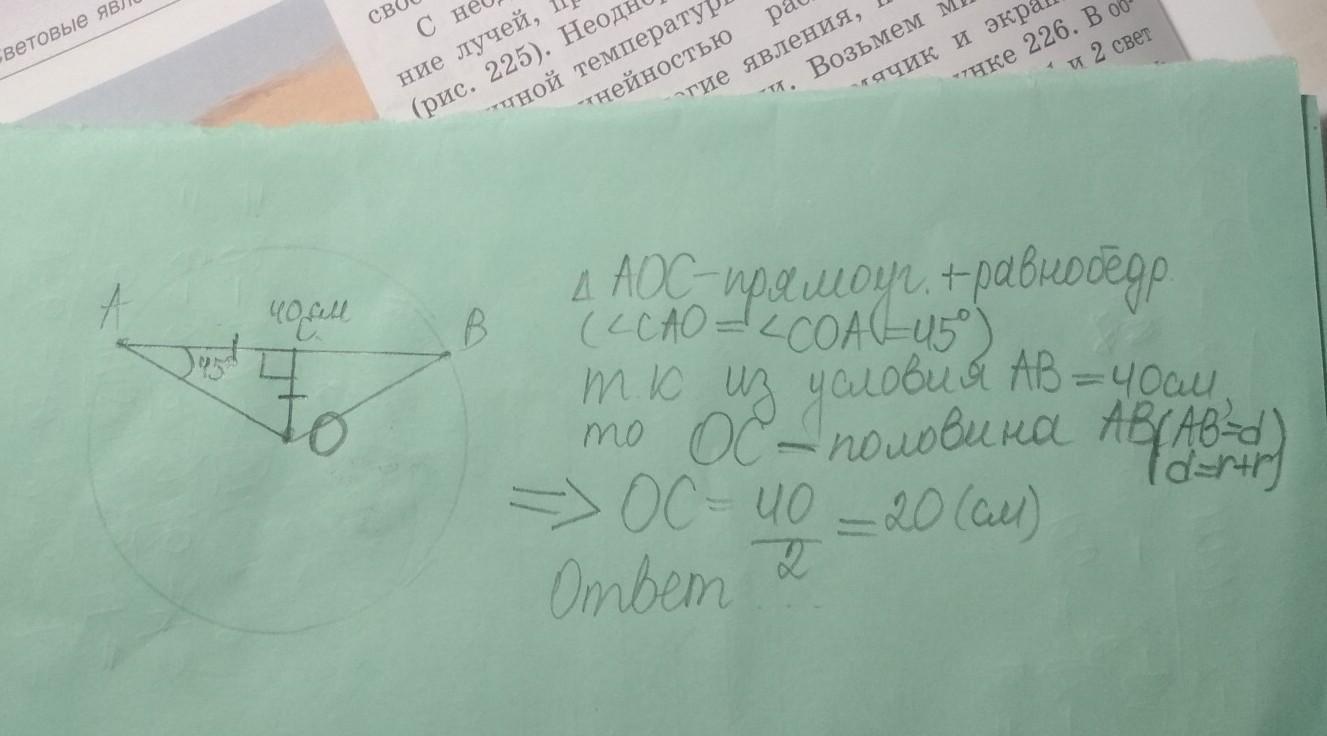 световые явл
свос
С нео
ние лучей, п
(рис. 225). Неодно
чной температур
нейностью рас
гие явления,
и. Возьмем м
мячик и экра
унке 226. В об-
и 2 свет
A
40см
C
B
45°
O
Δ AOC-прямоуг. +равнобедр.
(∠CAO=∠COA(=45°)
т.к из условия AB=40см,
то OC-половина AB(AB=d)
(d=r+r)
=> OC=40/2=20(см)
Ответ ....